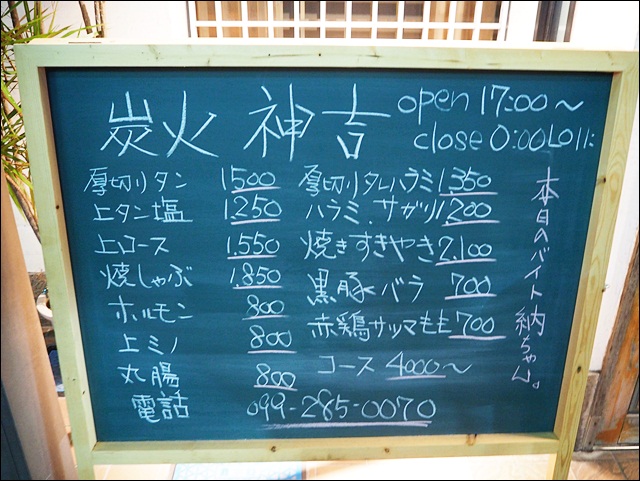 炭火 神吉
open 17:00～
close 0:00 LO11:
厚切りタン 1500
上タン塩 1.250
上ロース 1.550
焼しゃぶ 1.850
ホルモン 800
上ミノ 800
丸腸 800
厚切りタレハラミ 1.350
ハラミ.サガリ 1.200
焼きすきやき 2.100
黒豚バラ 700
赤鶏サツマもも 700
コース 4000～
電話 099-285-0070
本日のバイト納ちゃん。